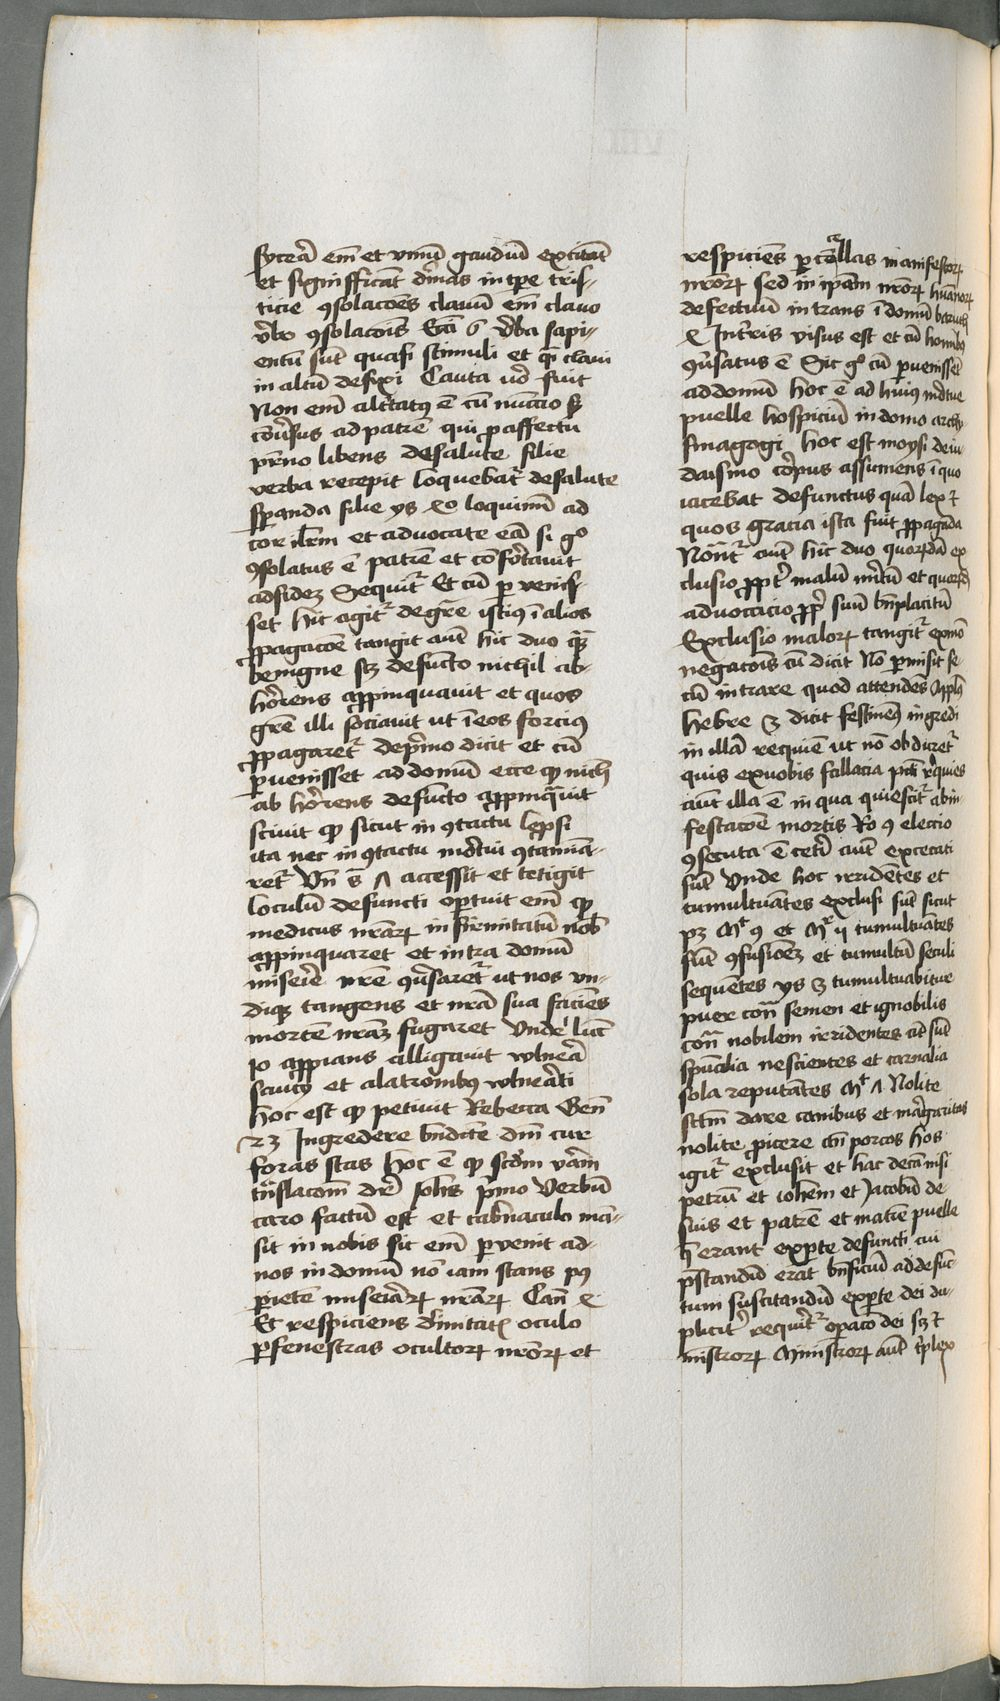 sycera em̄ et vinū gaudiū excitat̄
et significat̄ diuīas in tp̄e tris-
ticie ꝯsolacōes clauū em̄ clauo
v̄bo ꝯsolacōis Ecc̄i 6 v̄ba sapi-
entū sūt quasi stimuli et q̄i claui
in altū defixi Cauta v̄o fuit
Non em̄ alt̄catꝰ ē cū nūccio sꝫ
cōv̄sus ad patrē qui ꝑ affectū
pr̄no libens de salute filie
verba recepit loquebatʳ de salute
sp̄anda filie ys xlo loquimī ad
cor ilr̄m et aduocate eā si gº
ꝯsolatus ē patrē et cōfortauit
ad fidez Sequitʳ Et cū ꝑ venis-
set hic agitʳ de gr̄e istiꝰ ī alios
ꝓpagacōe tangit aut̄ hic duo q̄ꝫ
benigne sꝫ defūcto nichil ab-
horrens appīnquauit et quos
gr̄e illi sociauit ut ī eos forciꝰ
ꝓpagaretʳ De pͥmo dicit et cū
ꝑuenisset ad domū ecce qꝫ nich̄
ab horrens defūcto appīnq̄uit
sciuit qꝫ sicut in ꝯtactu lep̄si
ita nec in ꝯtactu mortui ꝯtamīa-
retʳ Vn̄ s̄ ʌ accessit et tetigit
loculū defuncti oportuit em̄ qꝫ
medicus nr̄arꝝ infirmitatū nob̄
appinquaret et intra domū
miserie nr̄e ꝯũsaretʳ ut nos vn-
diqꝫ tangens et nr̄ā sua faciēs
mortē nr̄aꝫ fugaret Unde luc̄
10 appians alligauit vulnera
sauciꝰ et a latronibꝰ vulnerati
hoc est qꝫ petiuit Rebecca Gen̄
23 Ingredere bn̄dicte dn̄i cur
foras stas hoc ē qꝫ scd̄m vām
trāslacōm dr̄ Joh̄is pͥmo Verbū
caro factū est et tab̄naculo mā-
sit in nobis sic em̄ ꝑvenit ad
nos in domū nō iam stans pꝰ
ꝑietē miseriarꝝ nr̄arꝝ Can̄ x
Et respiciens diuītatꝭ oculo
ꝑ fenestras ocultorꝝ nr̄orꝝ et
respiciēs ꝑ cācellas manifestorꝝ
nr̄orꝝ sed in ip̄am nr̄orꝝ hūanorꝝ
defectuū intrans ī domū
x In terris visus est et cū hom̄ibꝰ
ꝯũsatus ē Sic gº cū ꝑuenisset
ad domū hoc ē ad huiꝰ mortue
puelle hospiciū in domo archy-
sinagogi hoc est moysi de iu-
daismo corpus assumens ī quo
iacebat defunctus quā lex ⁊
quos gracia ista fuit ꝓpaganda
Nōtātʳ aut̄ hic duo quorūdā ex
clusio ꝓpt̄ malū mͥtū et quorūdā
aduocacio ꝓpt̄ suū bn̄placitū
Exclusio malorꝝ tangitʳ ex mō
negacōis cū dicit Nō ꝑmisit se
cū intrare quod attendēs Apl̄us
hebre 3 dicit festinēꝰ ingredi
in illā requiē ut nō obduretʳ
quis ex uobis fallacia pctī reͣquies
aut̄ illa ē in qua quiescitʳ ab in
festacōe mortis Ro 9 eleccio
ꝯsecuta ē ceteri aut̄ excecati
sūt Unde hoc irridentes et
tumultuātes exclusi sūt sicut
pꝫ Mt 9 et Mʳ ij tumultuātes
sūt ꝯfusionēꝫ et tumultū seculi
sequētes ys 3 tumultuabitur
puer cont̄ senem et ignobilis
cont̄ nobilem irridentes aūt sūt
sp̄ualia nescientes et carnalia
sola reputātes Mt ʌ Nolite
sctm̄ dare canibus et margaritas
nolite picere an̄ porcos hos
igitʳ exclusit et hac de cā nisi
petrū et ioh̄em et Jacobū de
suis et patrē et matrē puelle
Hⁱ erant ex ꝑte defuncti cui
pͤstandū erat bn̄ficiū ad defūc
tum suscitandū ex ꝑte dei du-
plicitͥ requiritʳ oꝑacō dei sꝫ ⁊
mīstrorꝝ Ministrorꝝ aut̄ tͥplex